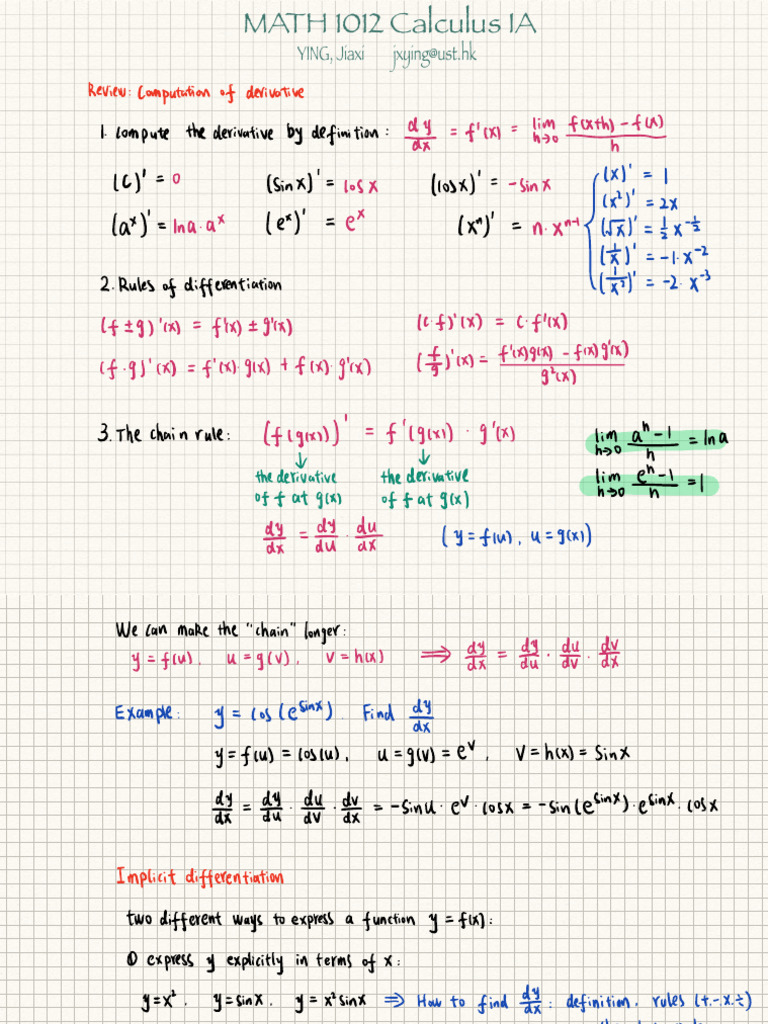 MATH 1012 Calculus IA
YING, Jiaxi jxying@ust.hk
Review: Computation of derivative
1. Compute the derivative by definition: dy/dx = f'(x) = lim h→0 (f(x+h) - f(x))/h
(C)' = 0 (sin x)' = cos x (cos x)' = -sin x
(a^x)' = ln a · a^x (e^x)' = e^x (x^n)' = n · x^(n-1)
(x)' = 1
(x²)' = 2x
(√x)' = 1/2 x^(-1/2)
(1/x)' = -1 · x^(-2)
(1/x²)' = -2 · x^(-3)
2. Rules of differentiation
(f ± g)'(x) = f'(x) ± g'(x) (c·f)'(x) = c·f'(x)
(f·g)'(x) = f'(x)·g(x) + f(x)·g'(x) (f/g)'(x) = (f'(x)g(x) - f(x)g'(x))/g²(x)
3. The chain rule: (f(g(x)))' = f'(g(x)) · g'(x)
↓ ↓
the derivative the derivative
of f at g(x) of f at g(x)
lim h→0 (a^h - 1)/h = ln a
lim h→0 (e^h - 1)/h = 1
dy/dx = dy/du · du/dx (y = f(u), u = g(x))
We can make the "chain" longer:
y = f(u), u = g(v), v = h(x) ⟹ dy/dx = dy/du · du/dv · dv/dx
Example: y = cos(e^(sin x)). Find dy/dx
y = f(u) = cos(u), u = g(v) = e^v, v = h(x) = sin x
dy/dx = dy/du · du/dv · dv/dx = -sin u · e^v · cos x = -sin(e^(sin x)) · e^(sin x) · cos x
Implicit differentiation
two different ways to express a function y = f(x):
① express y explicitly in terms of x:
y = x², y = sin x, y = x² sin x ⟹ How to find dy/dx: definition, rules (+.-.×.÷)